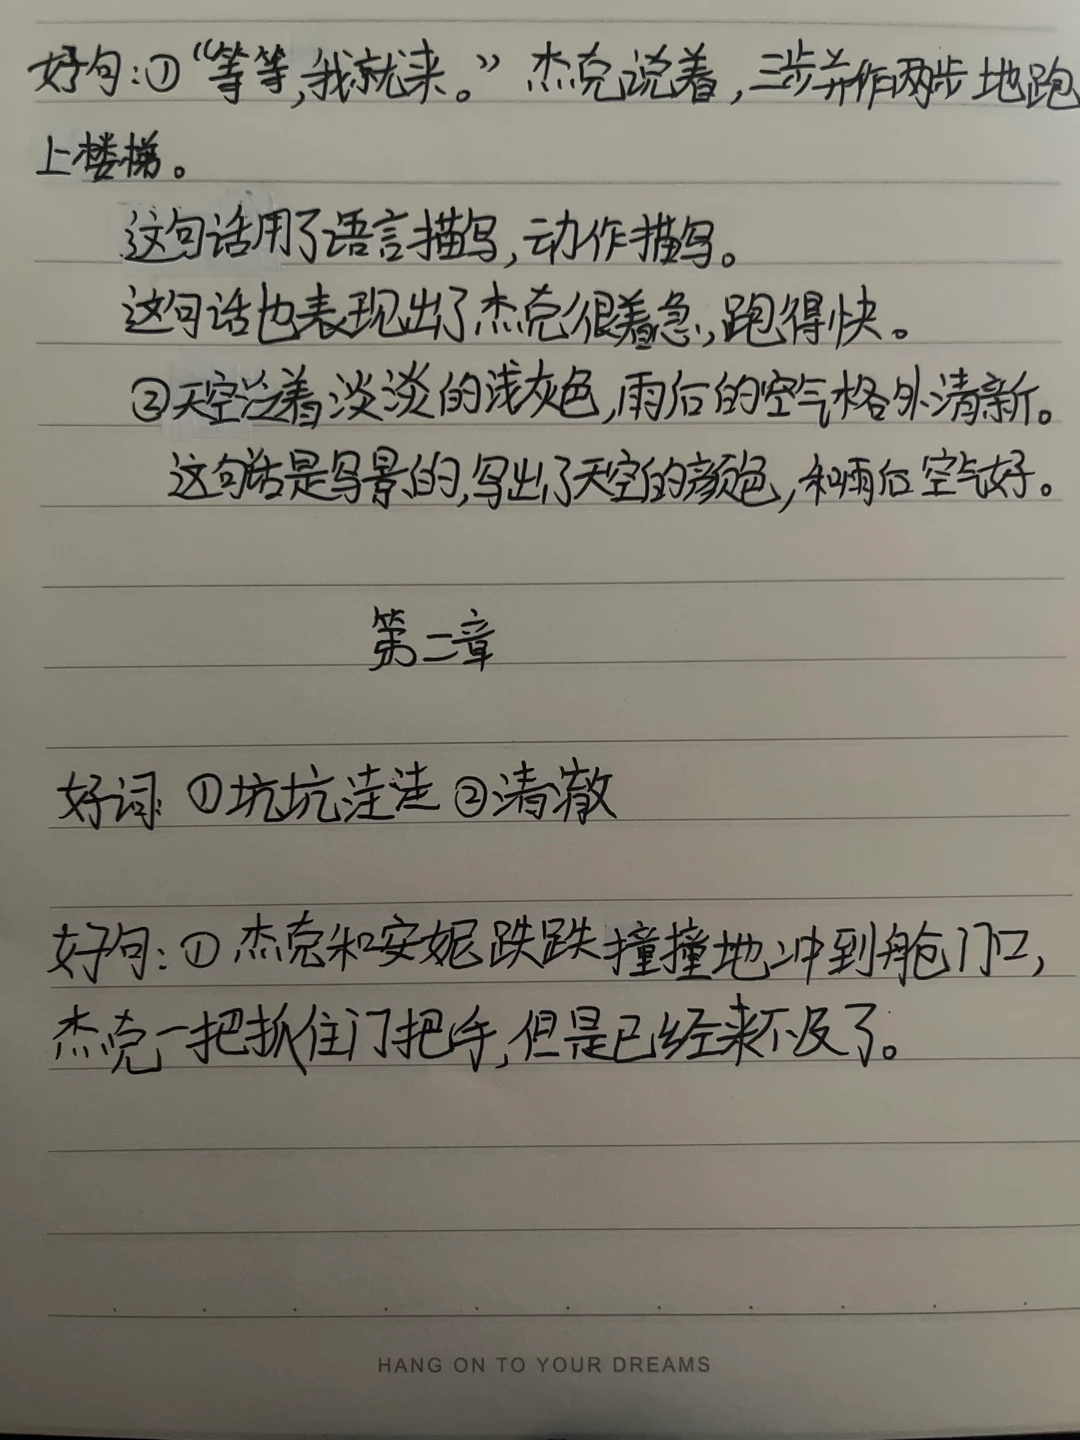 好句:①“等等,我就来。”杰克说着,三步并作两步地跑
上楼梯。
这句话用了语言描写,动作描写。
这句话也表现出了杰克很着急,跑得快。
②天空泛着淡淡的浅灰色,雨后的空气格外清新。
这句话是写景的,写出了天空的颜色,和雨后空气好。
第二章
好词:①坑坑洼洼②清澈
好句:①杰克和安妮跌跌撞撞地冲到舱门口,
杰克一把抓住门把手,但是已经来不及了。
HANG ON TO YOUR DREAMS